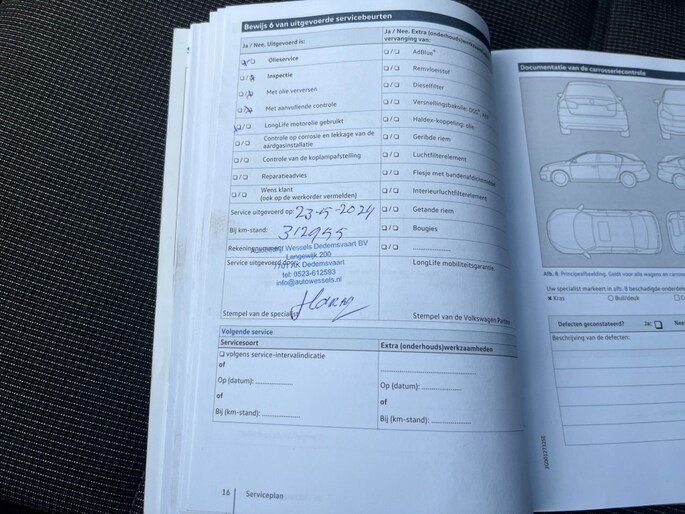 Bewijs 6 van uitgevoerde servicebeurten
Ja / Nee. Uitgevoerd is:
Olieservice
Inspectie
Met olie verversen
Met aanvullende controle
LongLife motorolie gebruikt
Controle op corrosie en lekkage van de
aardgasinstallatie
Controle van de koplampafstelling
Reparatieadvies
Wens klant
(ook op de werkorder vermelden)
Service uitgevoerd op: 23-5-2024
Bij km-stand: 312955
Rekeningnummer:
Wessels Dedemsvaart BV
Langewijk 200
Dedemsvaart
tel: 0523-612593
info@autowessels.nl
Service uitgevoerd door:
Stempel van de specialist
Ja / Nee. Extra (onderhouds)werkzaamheden
vervanging van:
AdBlue®
Remvloeistof
Dieselfilter
Versnellingsbakolie: DSG
Haldex-koppeling: olie
Geribde riem
Luchtfilterelement
Flesje met bandenafdichtmiddel
Interieurluchtfilterelement
Getande riem
Bougies
LongLife mobiliteitsgarantie
Stempel van de Volkswagen Partner
Volgende service
Servicesoort
volgens service-intervalindicatie
of
Op (datum):
of
Bij (km-stand):
Extra (onderhouds)werkzaamheden
Op (datum):
of
Bij (km-stand):
16 Serviceplan
Documentatie van de carrosseriecontrole
Afb. 8 Principeafbeelding. Geldt voor alle wagens en
Uw specialist markeert in afb. 8 beschadigde
x Kras O Buil/deuk
Defecten geconstateerd? Ja: Nee:
Beschrijving van de defecten: